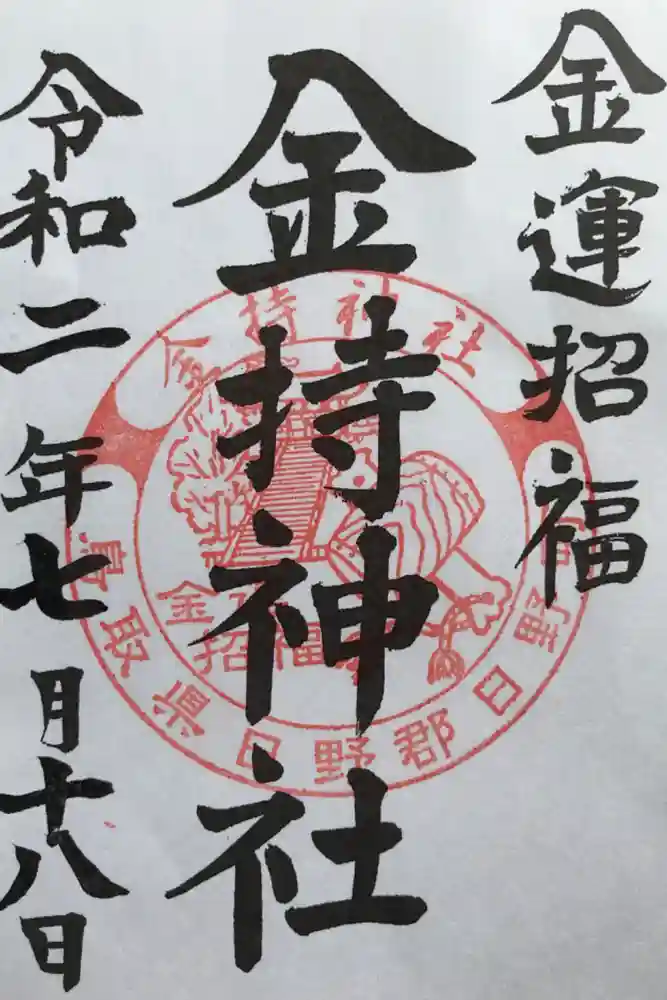 金運招福
金持神社
令和二年七月十八日
金持神社
鳥取県日野郡日野町
金運
招福